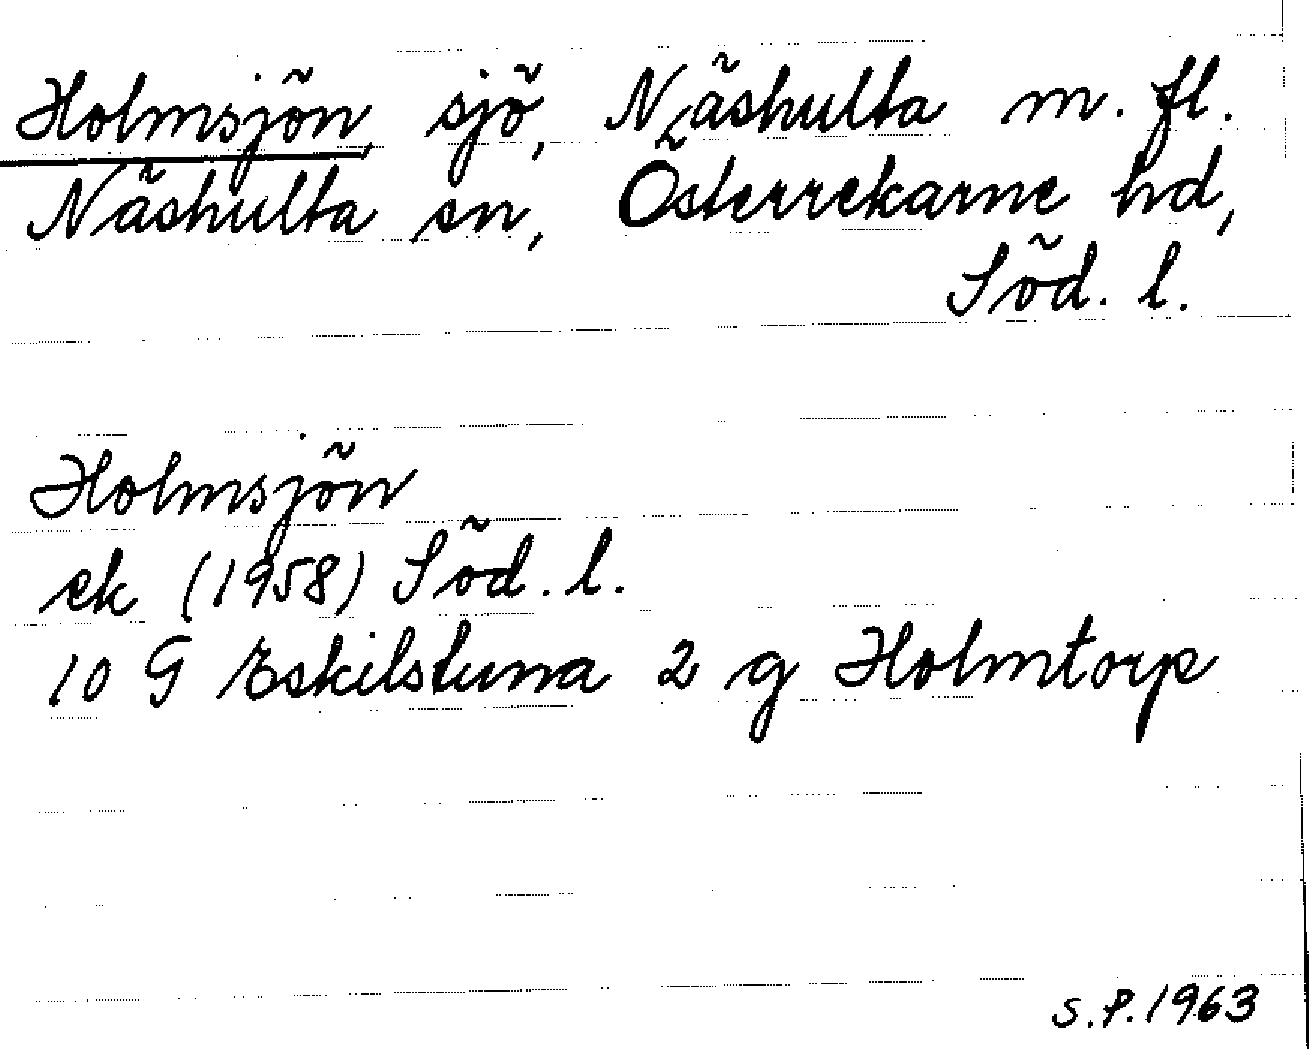 Holmsjön, sjö, Näshulta m. fl.
Näshulta sn, Österrekarne hd,
Söd. l.
Holmsjön
ek (1958) Söd. l.
10 G Eskilstuna 2 g Holmtorp
S.P. 1963